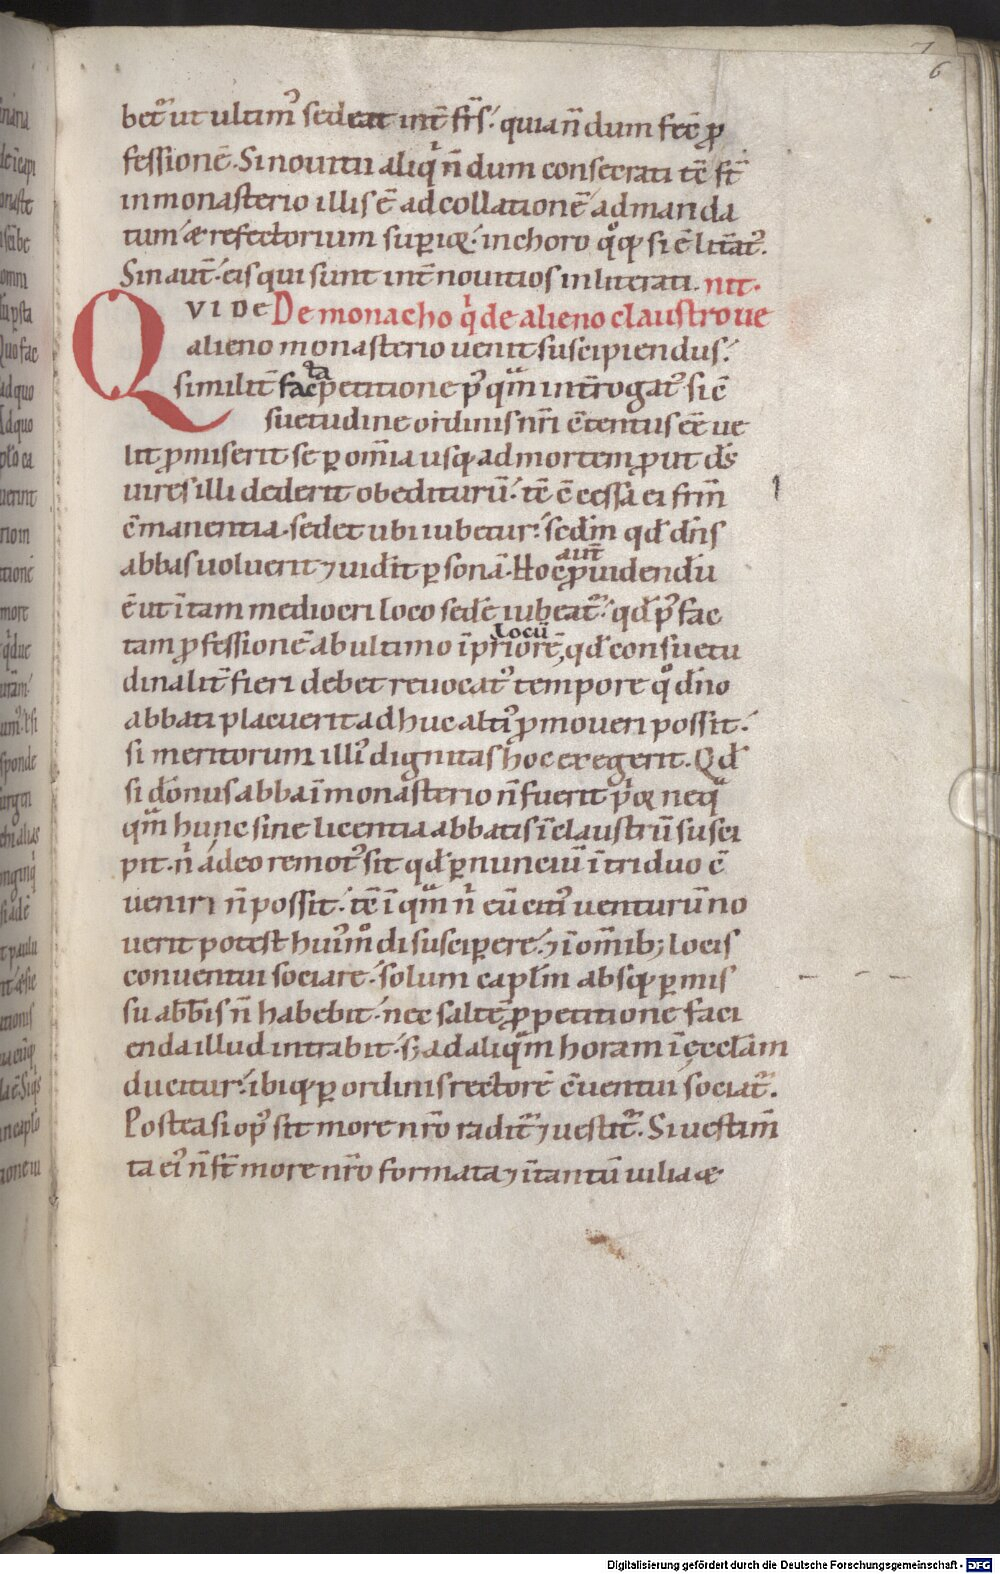 7
6
bet᷑ ut ultim᷒ sedeat int̄ fr̄s. quia n̄dum fec̄ ꝓ
fessionē. Si novitii aliqⁱ n̄dum consecrati tc̄ st̄
in monasterio illis ē ad collationē ad manda
tum & refectorium supꝑiꝰ. in choro qͦꝙ si ē litat᷒.
Sin aut̄. eis qui sunt int̄ novitios inliterati. nit.
QVI DE De monacho qⁱ de alieno claustro ue
alieno monasterio uenit suscipiendus.
similit̄ facta petitione p᷒ qᵃm int̄rogat᷒. si c̄
suetudine ordinis nr̄i c̄tentus eē ue
lit ꝓmiserit se ꝑ om̄ia usꝙ ad mortem ꝓut ds̄
uires illi dederit obediturū. tc̄ c̄cessa ei frm̄
c̄manentia. sedet ubi iubetur. scdm̄ qđ dn̄s
abbas uoluerit ⁊ uiđit ꝑsonā. Hoc aut̄ ꝓuidendū
ē ut ī tam mediocri loco sede iubeat᷒. qđ p᷒ fac
tam ꝓfessionē ab ultimo ī priorē locū, qđ consuetu
dinalit̄ fieri debet reuocat᷒ tempore qͦ dōno
abbati placuerit adhuc alti᷒ ꝓmoueri possit.
si meritorum illi᷒ dignitas hoc exegerit. Qđ
si dōnus abba ī monasterio n̄ fuerit pⁱoꝛ neqᵃ
qᵃm hunc sine licentia abbatis ī claustrū susci
pit. nⁱ adeo remot᷒ sit qđ ꝑ nunciū ī triduo c̄
ueniri n̄ possit. tc̄ ī qᵃm nⁱ eū citi᷒ uenturū no
uerit potest hui᷒mͦdi suscipere. ⁊ ī om̄ib; locis
conuentui sociare. solum capl̄m absꝙ ꝑmis
su abb̄is n̄ habebit. nec saltē ꝓ petitione faci
enda illud intrabit. s; ad aliqᵃm horam ī ęccl̄am
ducitur. ibiꝙ ꝑ ordinis rectorē c̄uentui sociat᷒.
Postea si op᷒ sit more nr̄o radit᷒ ⁊ uestit᷒. Si uestim̄
ta ei᷒ n̄ st̄ more nr̄o formata ⁊ ī tantū uilia &
Digitalisierung gefördert durch die Deutsche Forschungsgemeinschaft - DFG